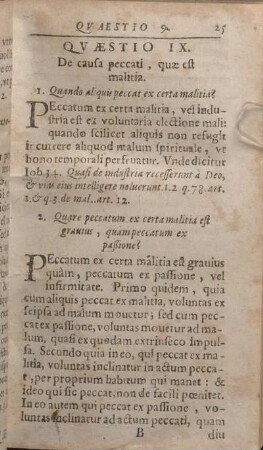 QVAESTIO 9. 25
QVÆSTIO IX.
De causa peccati, quæ est
malitia.
1. Quando aliquis peccat ex certa malitia?
PEccatum ex certa malitia, vel indu
stria est ex voluntaria electione mali:
quando scilicet aliquis non refugit
incurrere aliquod malum spirituale, vt
bono temporali perfruatur. Vnde dicitur
Iob 34. Quasi de industria recesserunt à Deo,
& vias eius intelligere noluerunt. 1.2 q.78. art.
1. & q.3 de mal. art. 12.
2. Quare peccatum ex certa malitia est
grauius, quam peccatum ex
passione?
PEccatum ex certa malitia est grauius
quàm, peccatum ex passione, vel
infirmitate. Primo quidem, quia
cum aliquis peccat ex malitia, voluntas ex
seipsa ad malum mouetur; sed cum pec-
cat ex passione, voluntas mouetur ad ma-
lum, quasi ex quodam extrinseco impul-
sa. Secundo quia in eo, qui peccat ex mali-
tia, voluntas inclinatur in actum pecca-
ti, per proprium habitum qui manet: &
ideo qui sic peccat, non de facili pœnitet.
In eo autem qui peccat ex passione, vo-
luntas inclinatur ad actum peccati, quam
B diu